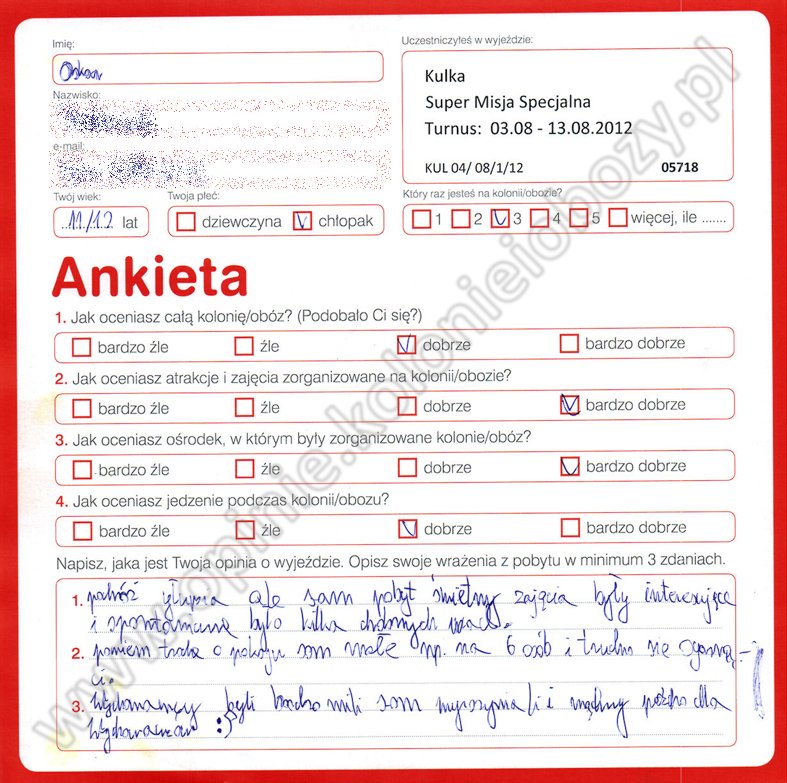 Imię:
Oskar
Uczestniczyłeś w wyjeździe:
Kulka
Super Misja Specjalna
Turnus: 03.08 - 13.08.2012
KUL 04/ 08/1/12 05718
Nazwisko:
e-mail:
Twój wiek: Twoja płeć:
11/12 lat dziewczyna V chłopak
Który raz jesteś na kolonii/obozie?
1 2 V 3 4 5 więcej, ile .......
Ankieta
1. Jak oceniasz całą kolonię/obóz? (Podobało Ci się?)
bardzo źle źle V dobrze bardzo dobrze
2. Jak oceniasz atrakcje i zajęcia zorganizowane na kolonii/obozie?
bardzo źle źle dobrze V bardzo dobrze
3. Jak oceniasz ośrodek, w którym były zorganizowane kolonie/obóz?
bardzo źle źle dobrze V bardzo dobrze
4. Jak oceniasz jedzenie podczas kolonii/obozu?
bardzo źle źle V dobrze bardzo dobrze
Napisz, jaka jest Twoja opinia o wyjeździe. Opisz swoje wrażenia z pobytu w minimum 3 zdaniach.
1. podróż głupia ale sam pobyt świetny zajęcia były interesujące
i było kilka
2. o pokoju som małe np. na 6 osób i trudno się
ci.
3. Wychowawcy byli bardzo mili som i
:)
www.opinie.kolonieiobozy.pl